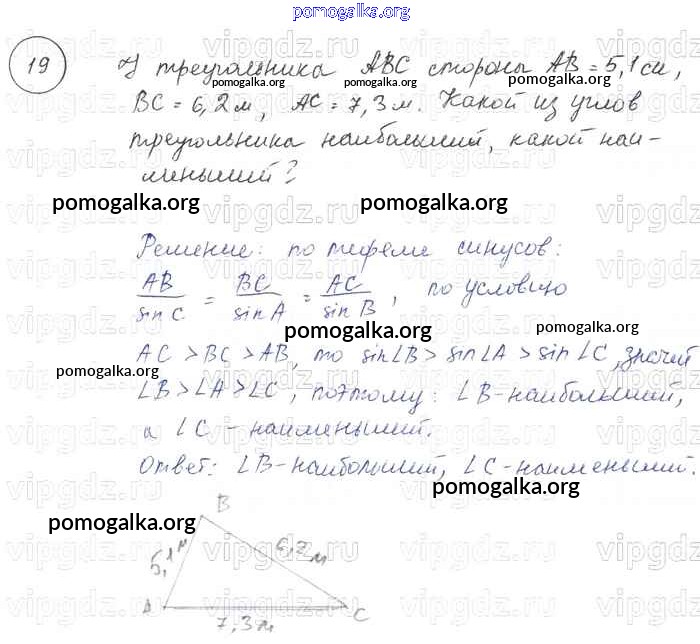 pomogalka.org
19
У треугольника ABC стороны AB = 5,1 см,
BC = 6,2 м, AC = 7,3 м. Какой из углов
треугольника наибольший, какой наи-
меньший?
pomogalka.org pomogalka.org
Решение: по теореме синусов:
AB/sin C = BC/sin A = AC/sin B, по условию
pomogalka.org pomogalka.org
AC > BC > AB, то sin∠B > sin∠A > sin∠C, значит
pomogalka.org
∠B > ∠A > ∠C, поэтому: ∠B - наибольший,
а ∠C - наименьший.
Ответ: ∠B - наибольший, ∠C - наименьший.
pomogalka.org
B
pomogalka.org
5,1 м 6,2 м
A C
7,3 м